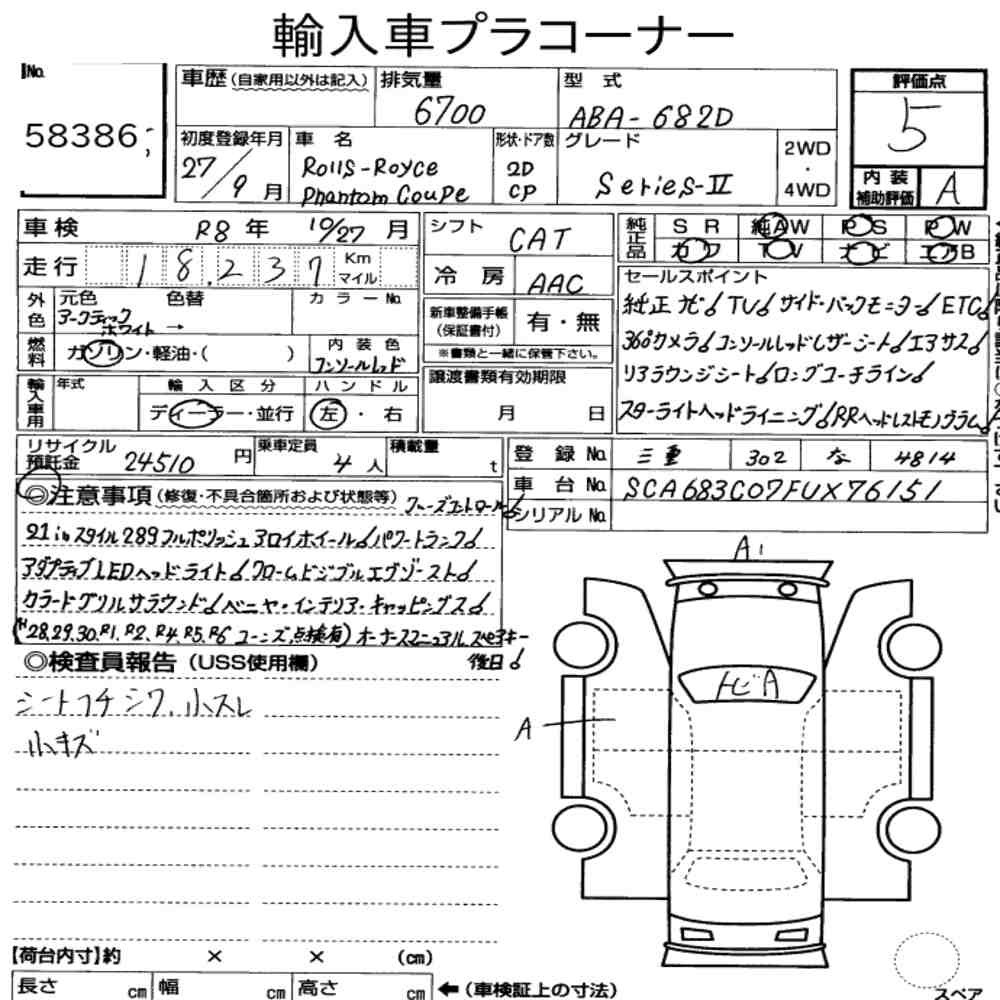 輸入車プラコーナー
No.
58386
車歴(自家用以外は記入) 排気量 型式 評価点
6700 ABA-682D 5
初度登録年月 車名 形状・ドア数 グレード 2WD・4WD
27/9月 Rolls-Royce Phantom Coupe 2D CP Series-II
内装補助評価 A
車検 R8年 10/27月 シフト CAT
純正品 SR 純AW PS PW
カワ TV ナビ エアB
走行 18,237 Km マイル 冷房 AAC
セールスポイント
外色 元色 色替 カラーNo.
アークティックホワイト →
新車整備手帳(保証書付) 有・無
※書類と一緒に保管下さい。
純正ナビ!TV!サイド・バックモニター!ETC!
燃料 ガソリン・軽油・( ) 内装色 コンソールレッド
360°カメラ!コンソールレッドレザーシート!エアサス!
輸入車用 年式 輸入区分 ハンドル
ディーラー・並行 左・右
譲渡書類有効期限
月 日
リアラウンジシート!ロングコーチライン!
スターライトヘッドライニング!RRヘッドレストモノグラム!
リサイクル預託金 24510円 乗車定員 4人 積載量 t
登録No. 三重 302 な 4814
車台No. SCA683C07FUX76151
シリアルNo.
◎注意事項(修復・不具合箇所および状態等) クルーズコントロール!
21inスタイル289フルポリッシュアロイホイール!パワートランク!
アダプティブLEDヘッドライト!クロームビジブルエグゾースト!
カラードグリルサラウンド!ベニヤ・インテリア・キャッピングス!
(H28,29,30,R1,R2,R4,R5,R6 コーンズ点検有)オーナースマニュアルスペアキー
後日!
◎検査員報告(USS使用欄)
シートフチシワ、小スレ
小キズ
A1
トビA
A
【荷台内寸】約 × × (cm)
長さ cm 幅 cm 高さ cm ←(車検証上の寸法)
スペア